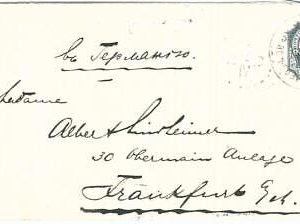 въ Германію.
Madame
Albert Lindheimer
30 Obermain Anlage
Frankfurt